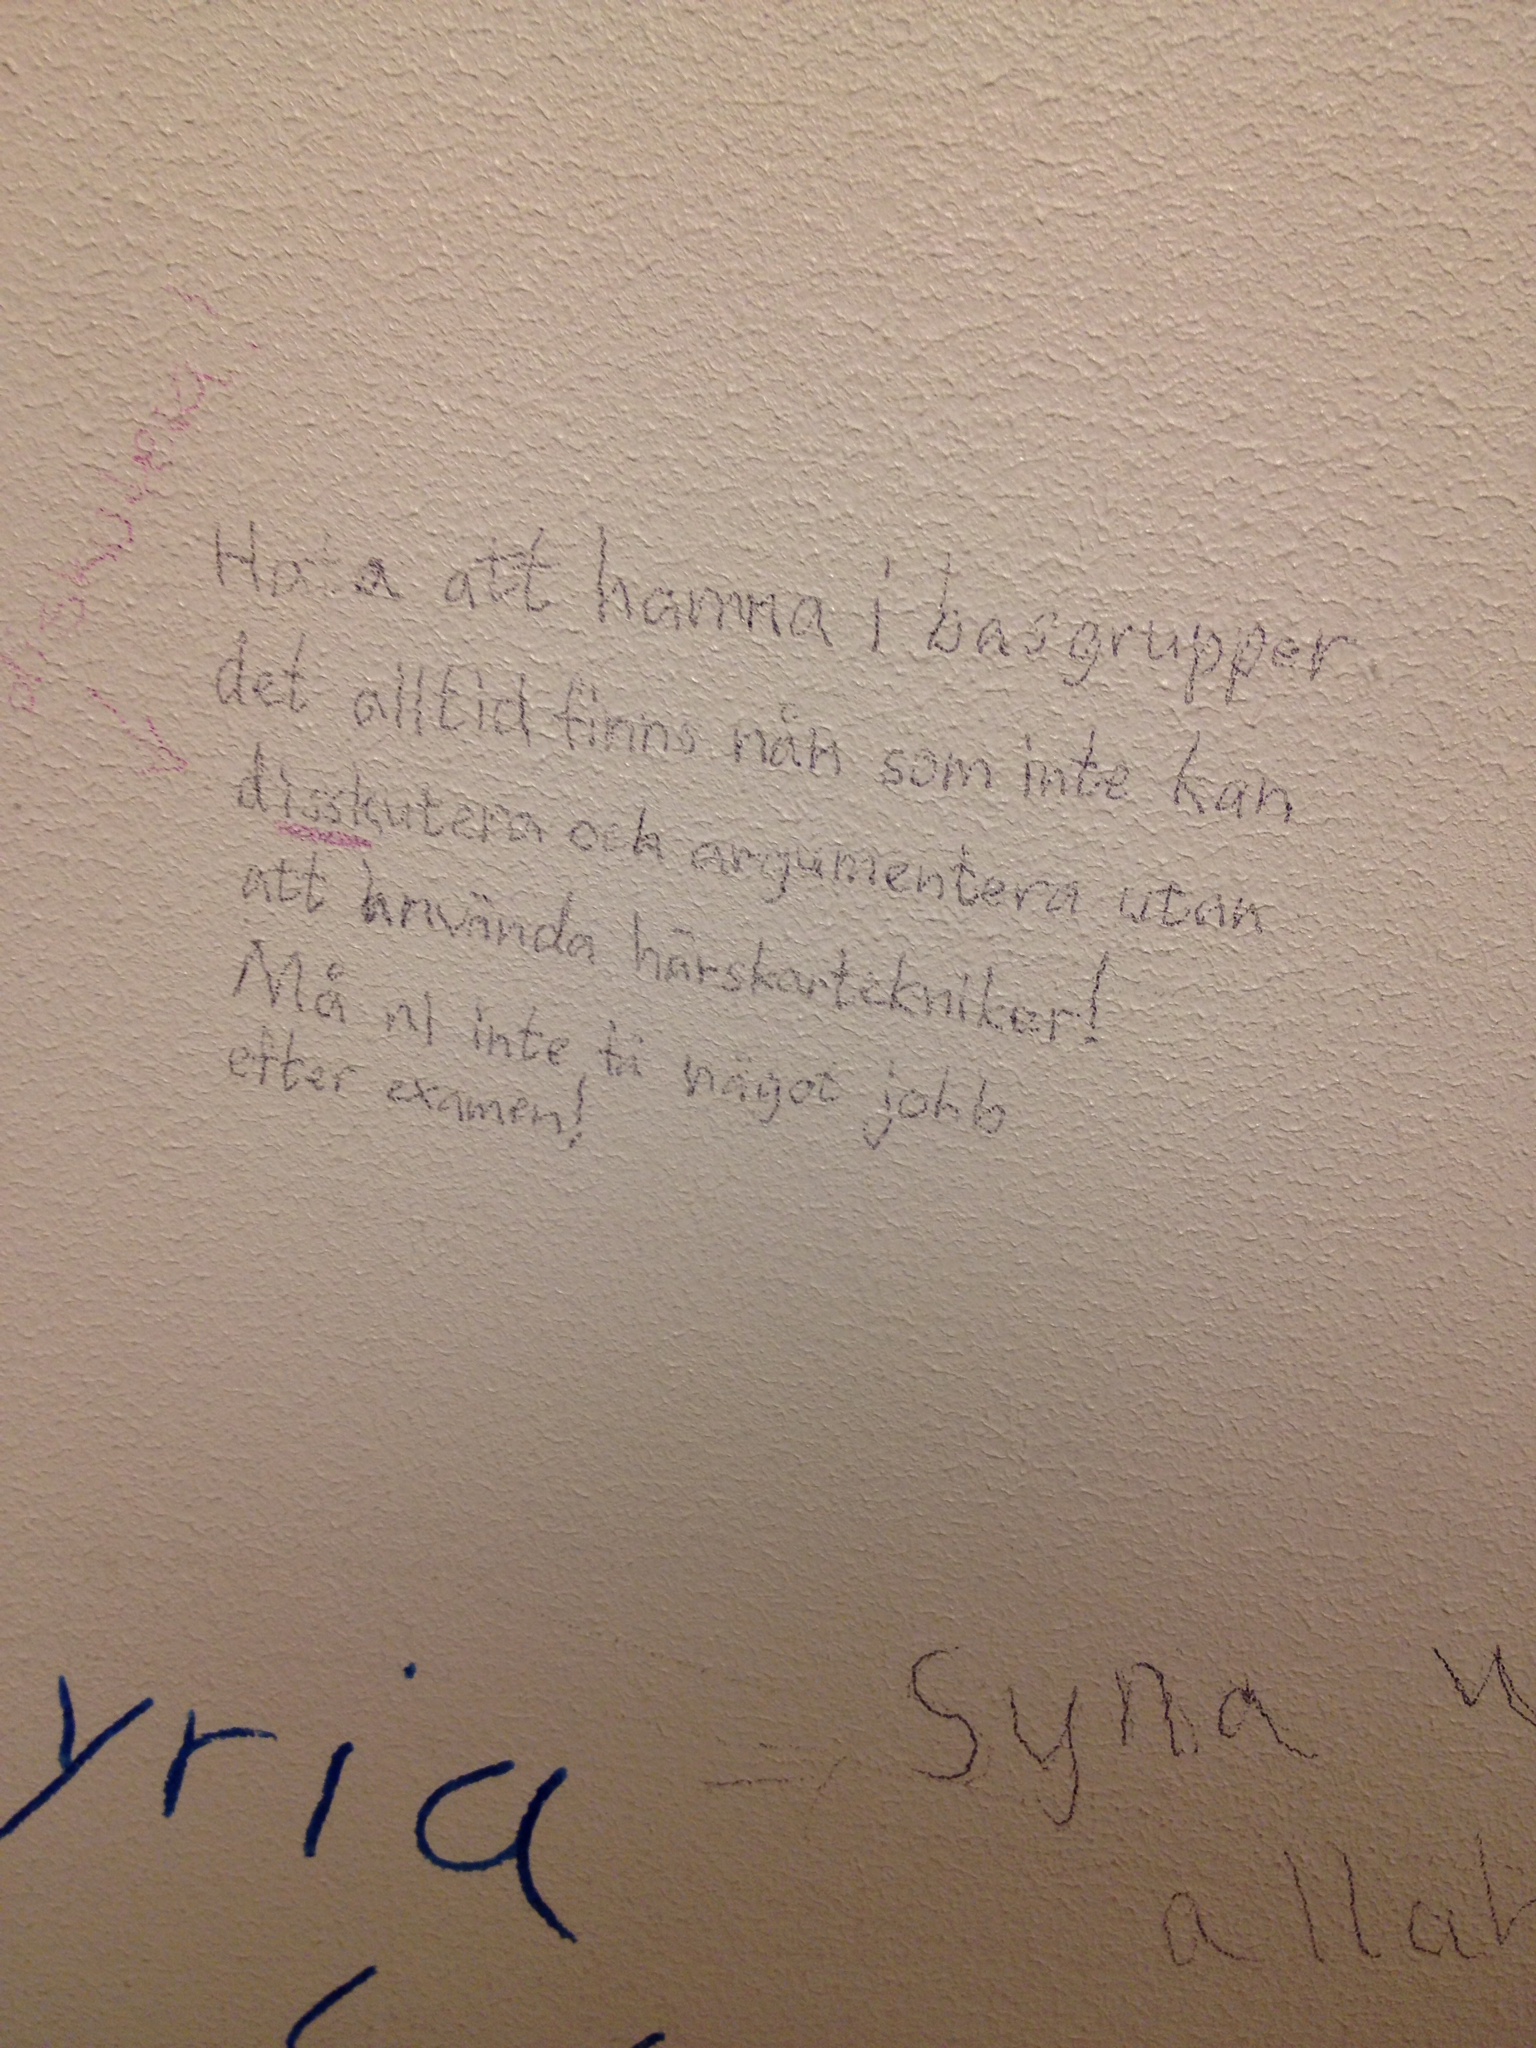 Hata att hamna i basgrupper
det alltid finns nån som inte kan
disskutera och argumentera utan
att använda härskartekniker!
Må ni inte få något jobb
efter examen!
yria
Syna
allah